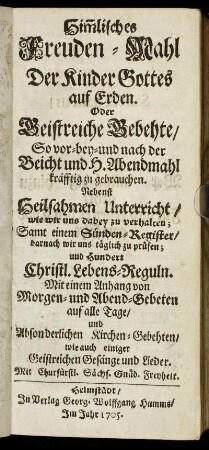 Him̃lisches
Freuden-Mahl
Der Kinder Gottes
auf Erden.
Oder
Geistreiche Gebehte/
So vor-bey-und nach der
Beicht und H. Abendmahl
kräfftig zu gebrauchen.
Nebenst
Heilsahmen Unterricht/
wie wir uns dabey zu verhalten;
Samt einem Sünden-Register/
darnach wir uns täglich zu prüfen;
und Hundert
Christl. Lebens-Reguln.
Mit einem Anhang von
Morgen- und Abend-Gebeten
auf alle Tage/
und
Absonderlichen Kirchen-Gebehten/
wie auch einiger
Geistreichen Gesänge und Lieder.
Mit Churfürstl. Sächs. Gnäd. Freyheit.
Helmstädt/
In Verlag Georg. Wolffgang Hamms/
Im Jahr 1705.